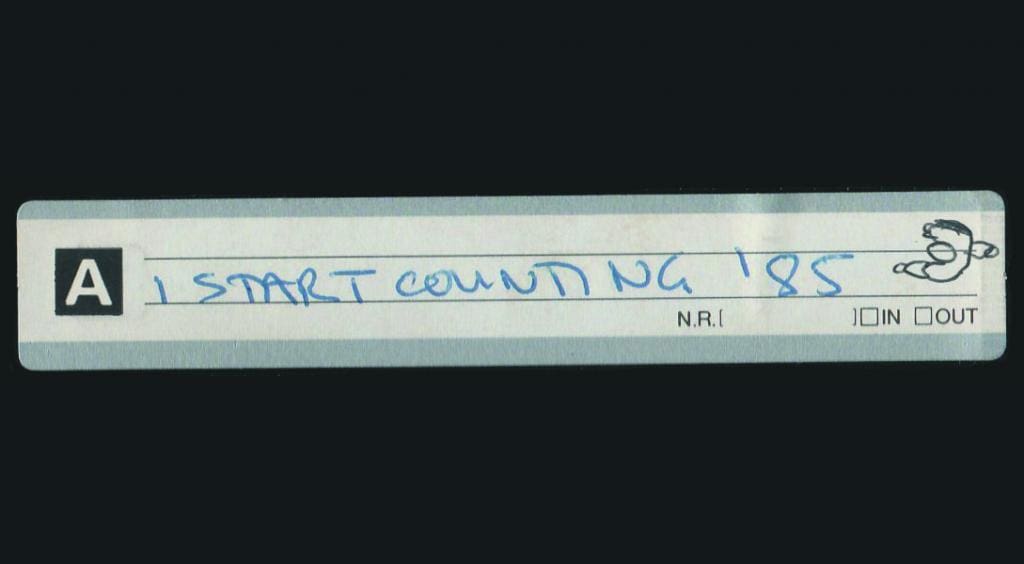 A
I START COUNTING '85
N.R.[ ]☐IN ☐OUT